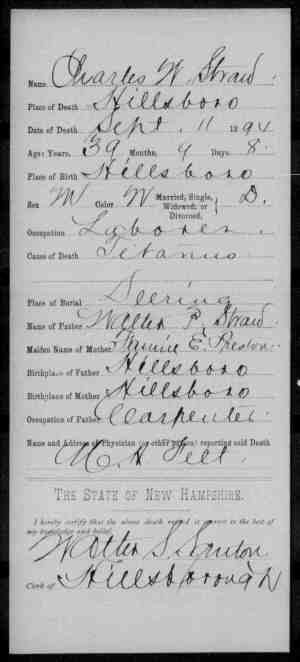 Name Charles W. Straw.
Place of Death Hillsboro
Date of Death Sept. 11 1894
Age: Years, 39 Months, 9 Days. 8.
Place of Birth Hillsboro
Sex M Color W Married, Single, Widowed, or Divorced. D.
Occupation Laborer.
Cause of Death Tetanus
Place of Burial Deering
Name of Father Walter P. Straw.
Maiden Name of Mother E. Preston.
Birthplace of Father Hillsboro
Birthplace of Mother Hillsboro
Occupation of Father Carpenter.
Name and Address of Physician (or other person) reporting said Death
M. H. Felt.
THE STATE OF NEW HAMPSHIRE.
I hereby certify that the above death record is correct to the best of
my knowledge and belief.
Walter S.
Clerk of Hillsborough